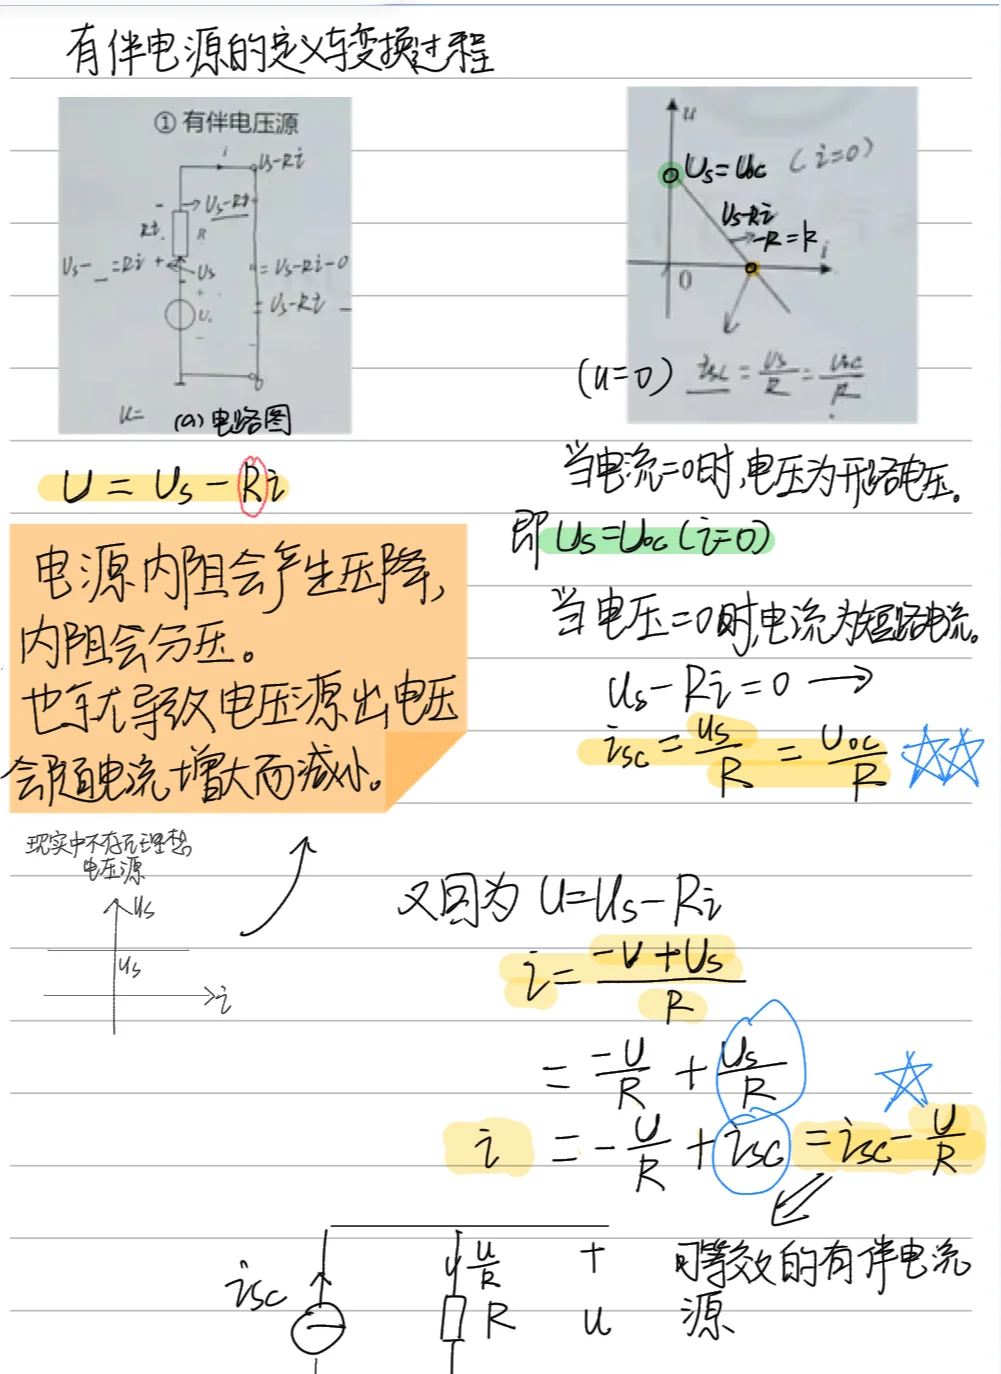 有伴电源的定义与变换过程
① 有伴电压源
i
Us-Ri
Us-Ri
Ri
R
Us-_=Ri
+
Us
=Us-Ri-0
=Us-Ri
+
U
-
u=
(a)电路图
u
Us=Uoc (i=0)
Us-Ri
-R=k
i
0
(u=0) isc=Us/R=Uoc/R
U=Us-Ri
当电流=0时,电压为开路电压。
即Us=Uoc(i=0)
电源内阻会产生压降,
内阻会分压。
也就导致电压源出电压
会随电流增大而减小。
当电压=0时,电流为短路电流。
us-Ri=0→
isc=us/R=Uoc/R
现实中不存在理想
电压源
us
us
i
又因为 U=Us-Ri
i=(-U+Us)/R
=-U/R+Us/R
i=-U/R+isc=isc-U/R
可等效的有伴电流
源
isc
u/R
R
+
u